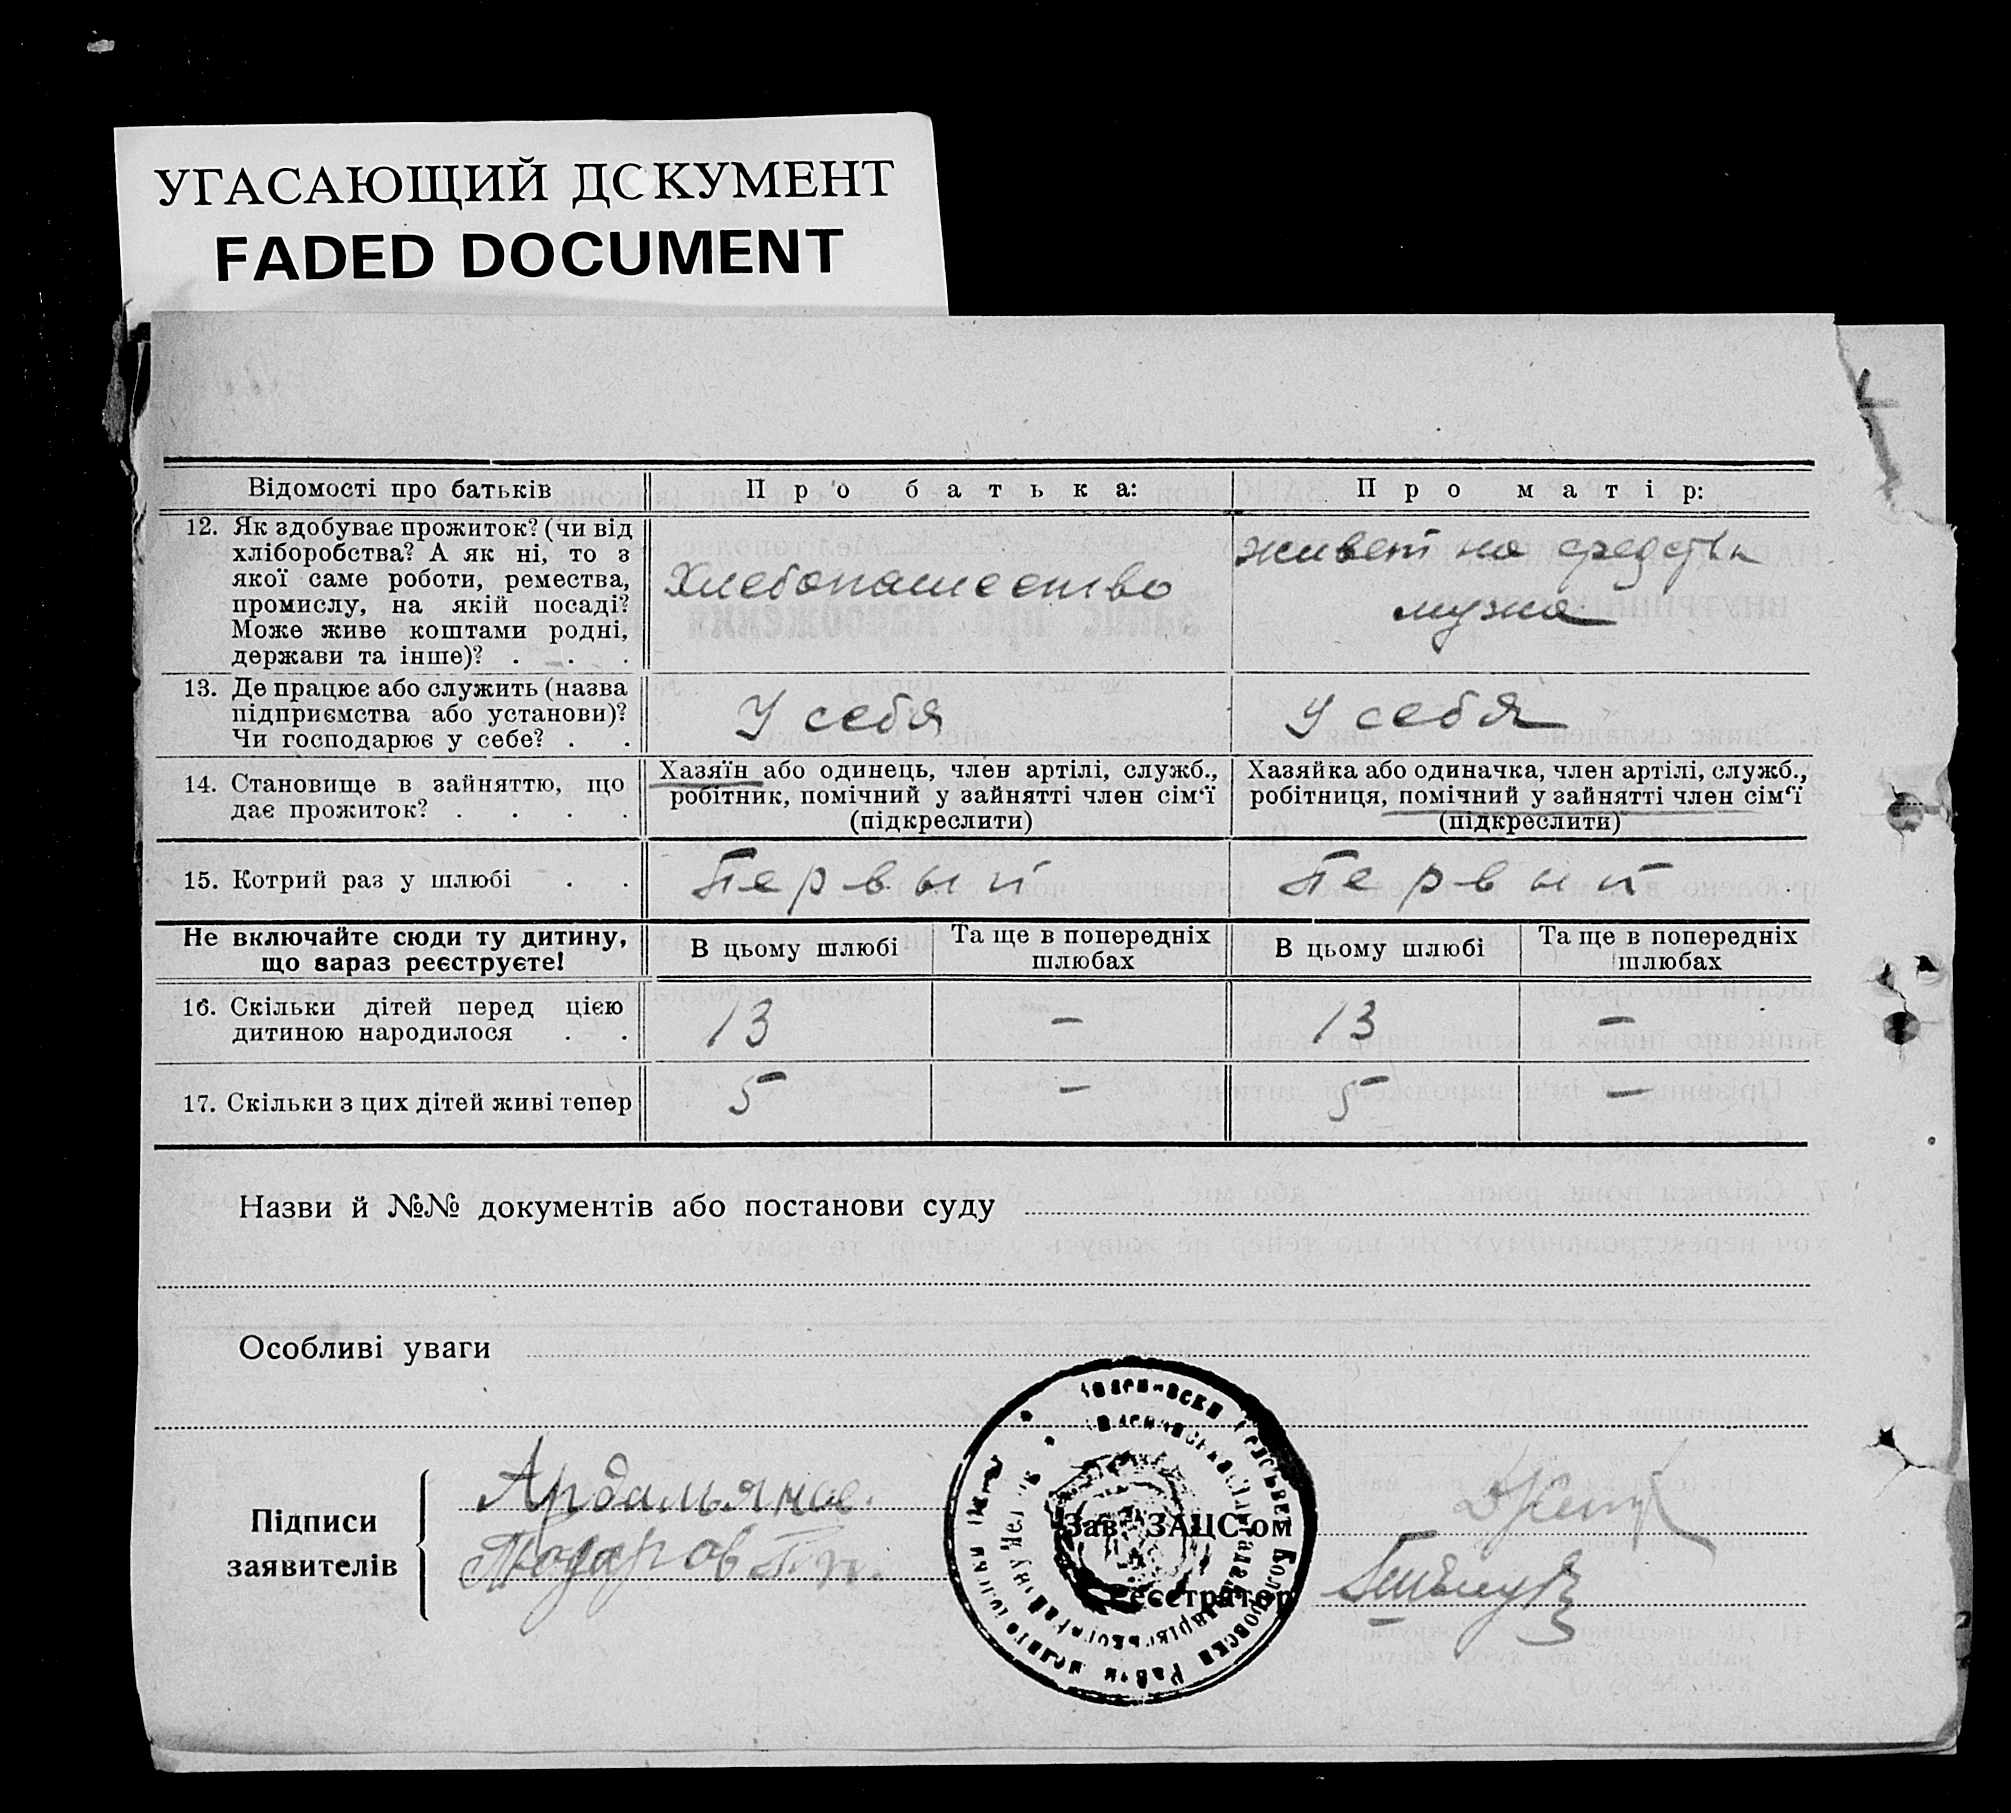 УГАСАЮЩИЙ ДОКУМЕНТ
FADED DOCUMENT
Відомості про батьків
Про батька:
Про матір:
12. Як здобуває прожиток? (чи від
хліборобства? А як ні, то з
якої саме роботи, ремества,
промислу, на якій посаді?
Може живе коштами родні,
держави та інше)? . . .
Хлебопашество
живет на средства
мужа
13. Де працює або служить (назва
підприємства або установи)?
Чи господарює у себе? . .
У себя
У себя
14. Становище в зайняттю, що
дає прожиток? . . . .
Хазяїн або одинець, член артілі, служб.,
робітник, помічний у зайнятті член сім'ї
(підкреслити)
Хазяйка або одиначка, член артілі, служб.,
робітниця, помічний у зайнятті член сім'ї
(підкреслити)
15. Котрий раз у шлюбі . .
Первый
Первый
Не включайте сюди ту дитину,
що зараз реєструєте!
В цьому шлюбі
Та ще в попередніх
шлюбах
В цьому шлюбі
Та ще в попередніх
шлюбах
16. Скільки дітей перед цією
дитиною народилося . .
13
–
13
–
17. Скільки з цих дітей живі тепер
5
–
5
–
Назви й №№ документів або постанови суду
Особливі уваги
Підписи
заявителів
Тодоров
Зав. ЗАЦС-ом
Реєстратор